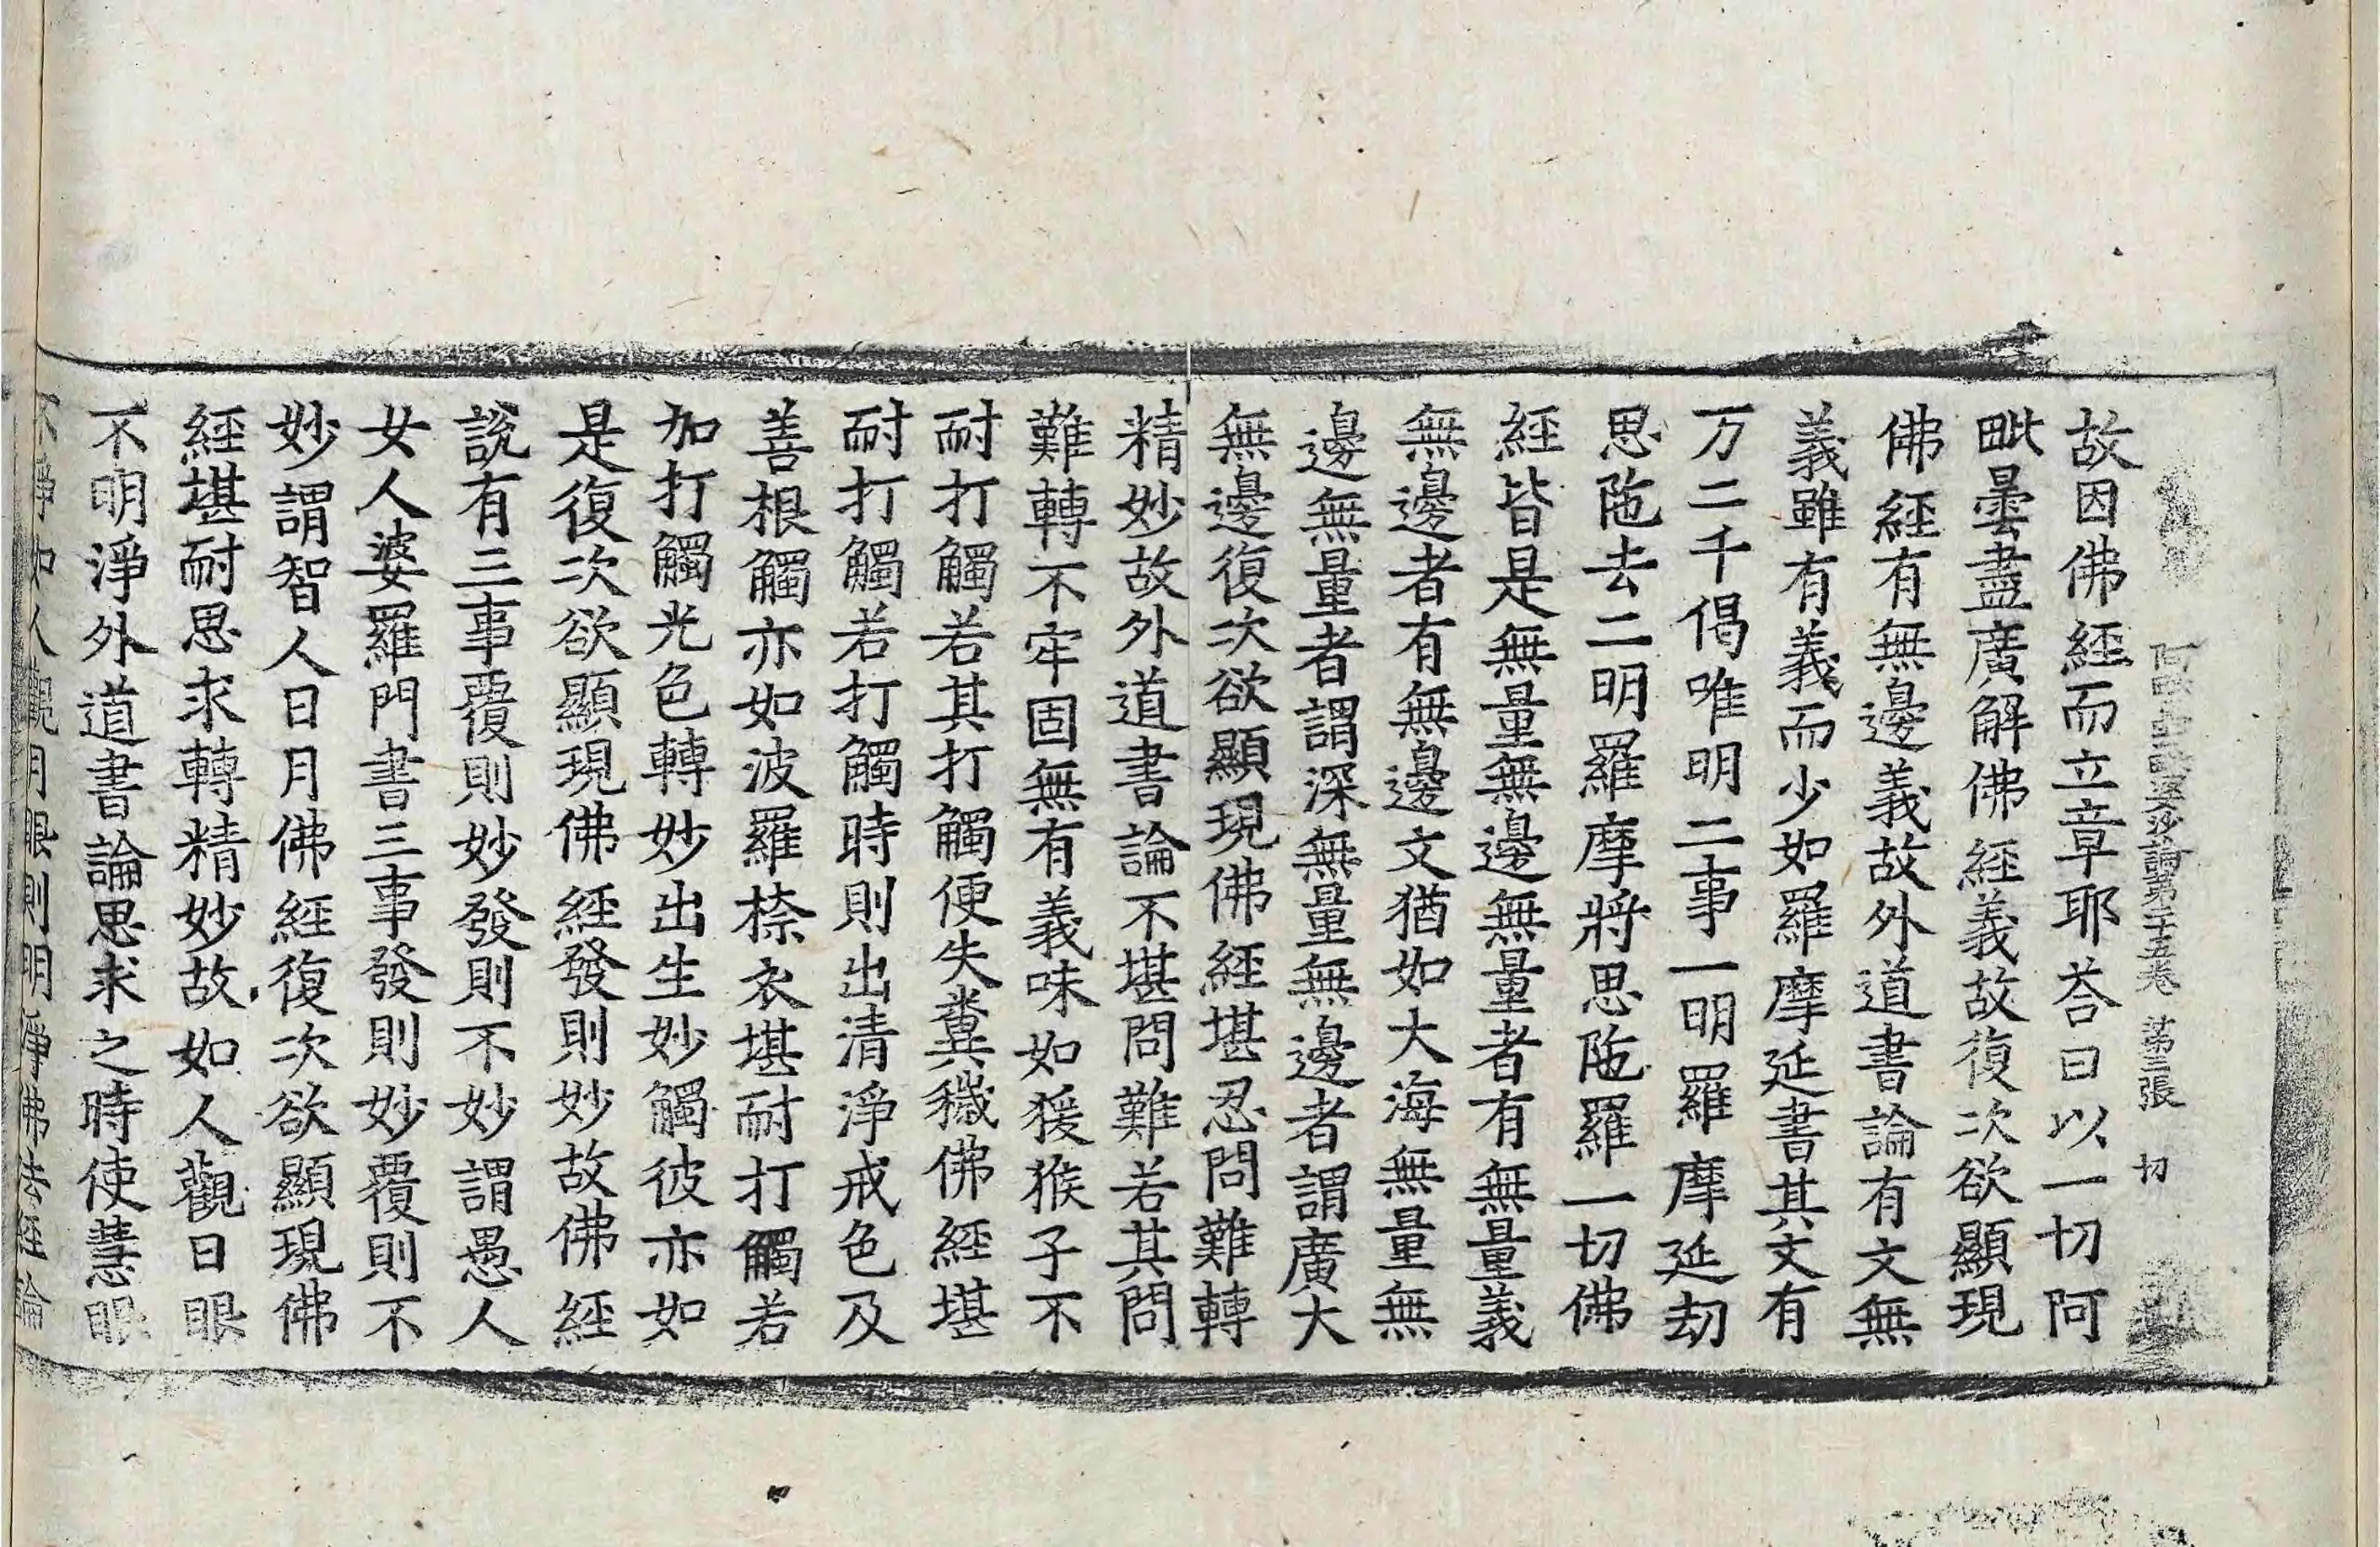 阿毗曇毗婆沙論第二十五卷 第三張 切
故因佛經而立章耶荅曰以一切阿
毗曇盡廣解佛經義故復次欲顯現
佛經有無邊義故外道書論有文無
義雖有義而少如羅摩延書其文有
万二千偈唯明二事一明羅摩延劫
思陁去二明羅摩將思陁羅一切佛
經皆是無量無邊無量者有無量義
無邊者有無邊文猶如大海無量無
邊無量者謂深無量無邊者謂廣大
無邊復次欲顯現佛經堪忍問難轉
精妙故外道書論不堪問難若其問
難轉不牢固無有義味如猨猴子不
耐打觸若其打觸便失糞穢佛經堪
耐打觸若打觸時則出清淨戒色及
善根觸亦如波羅㮈衣堪耐打觸若
加打觸光色轉妙出生妙觸彼亦如
是復次欲顯現佛經發則妙故佛經
說有三事覆則妙發則不妙謂愚人
女人婆羅門書三事發則妙覆則不
妙謂智人日月佛經復次欲顯現佛
經堪耐思求轉精妙故如人觀日眼
不明淨外道書論思求之時使慧眼
不淨如人觀月眼則明淨佛去經論